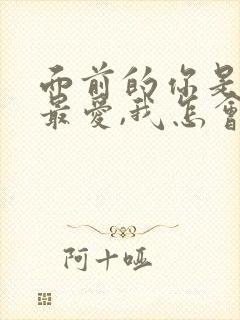 而前的你是
最爱,我怎會
阿十哑